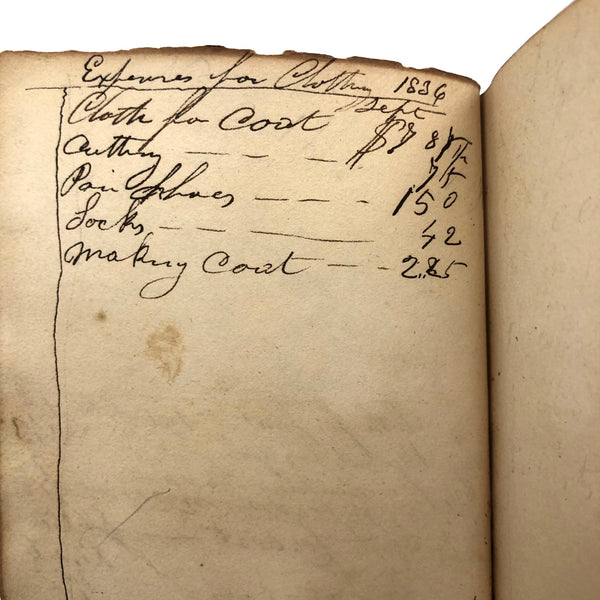 Expenses for Clothing 1836
Sept
Cloth for Coat $7 87½
Cutting — — — 75
Pair Shoes — — — 1 50
Socks — — — 42
Making Coat — — 2.25